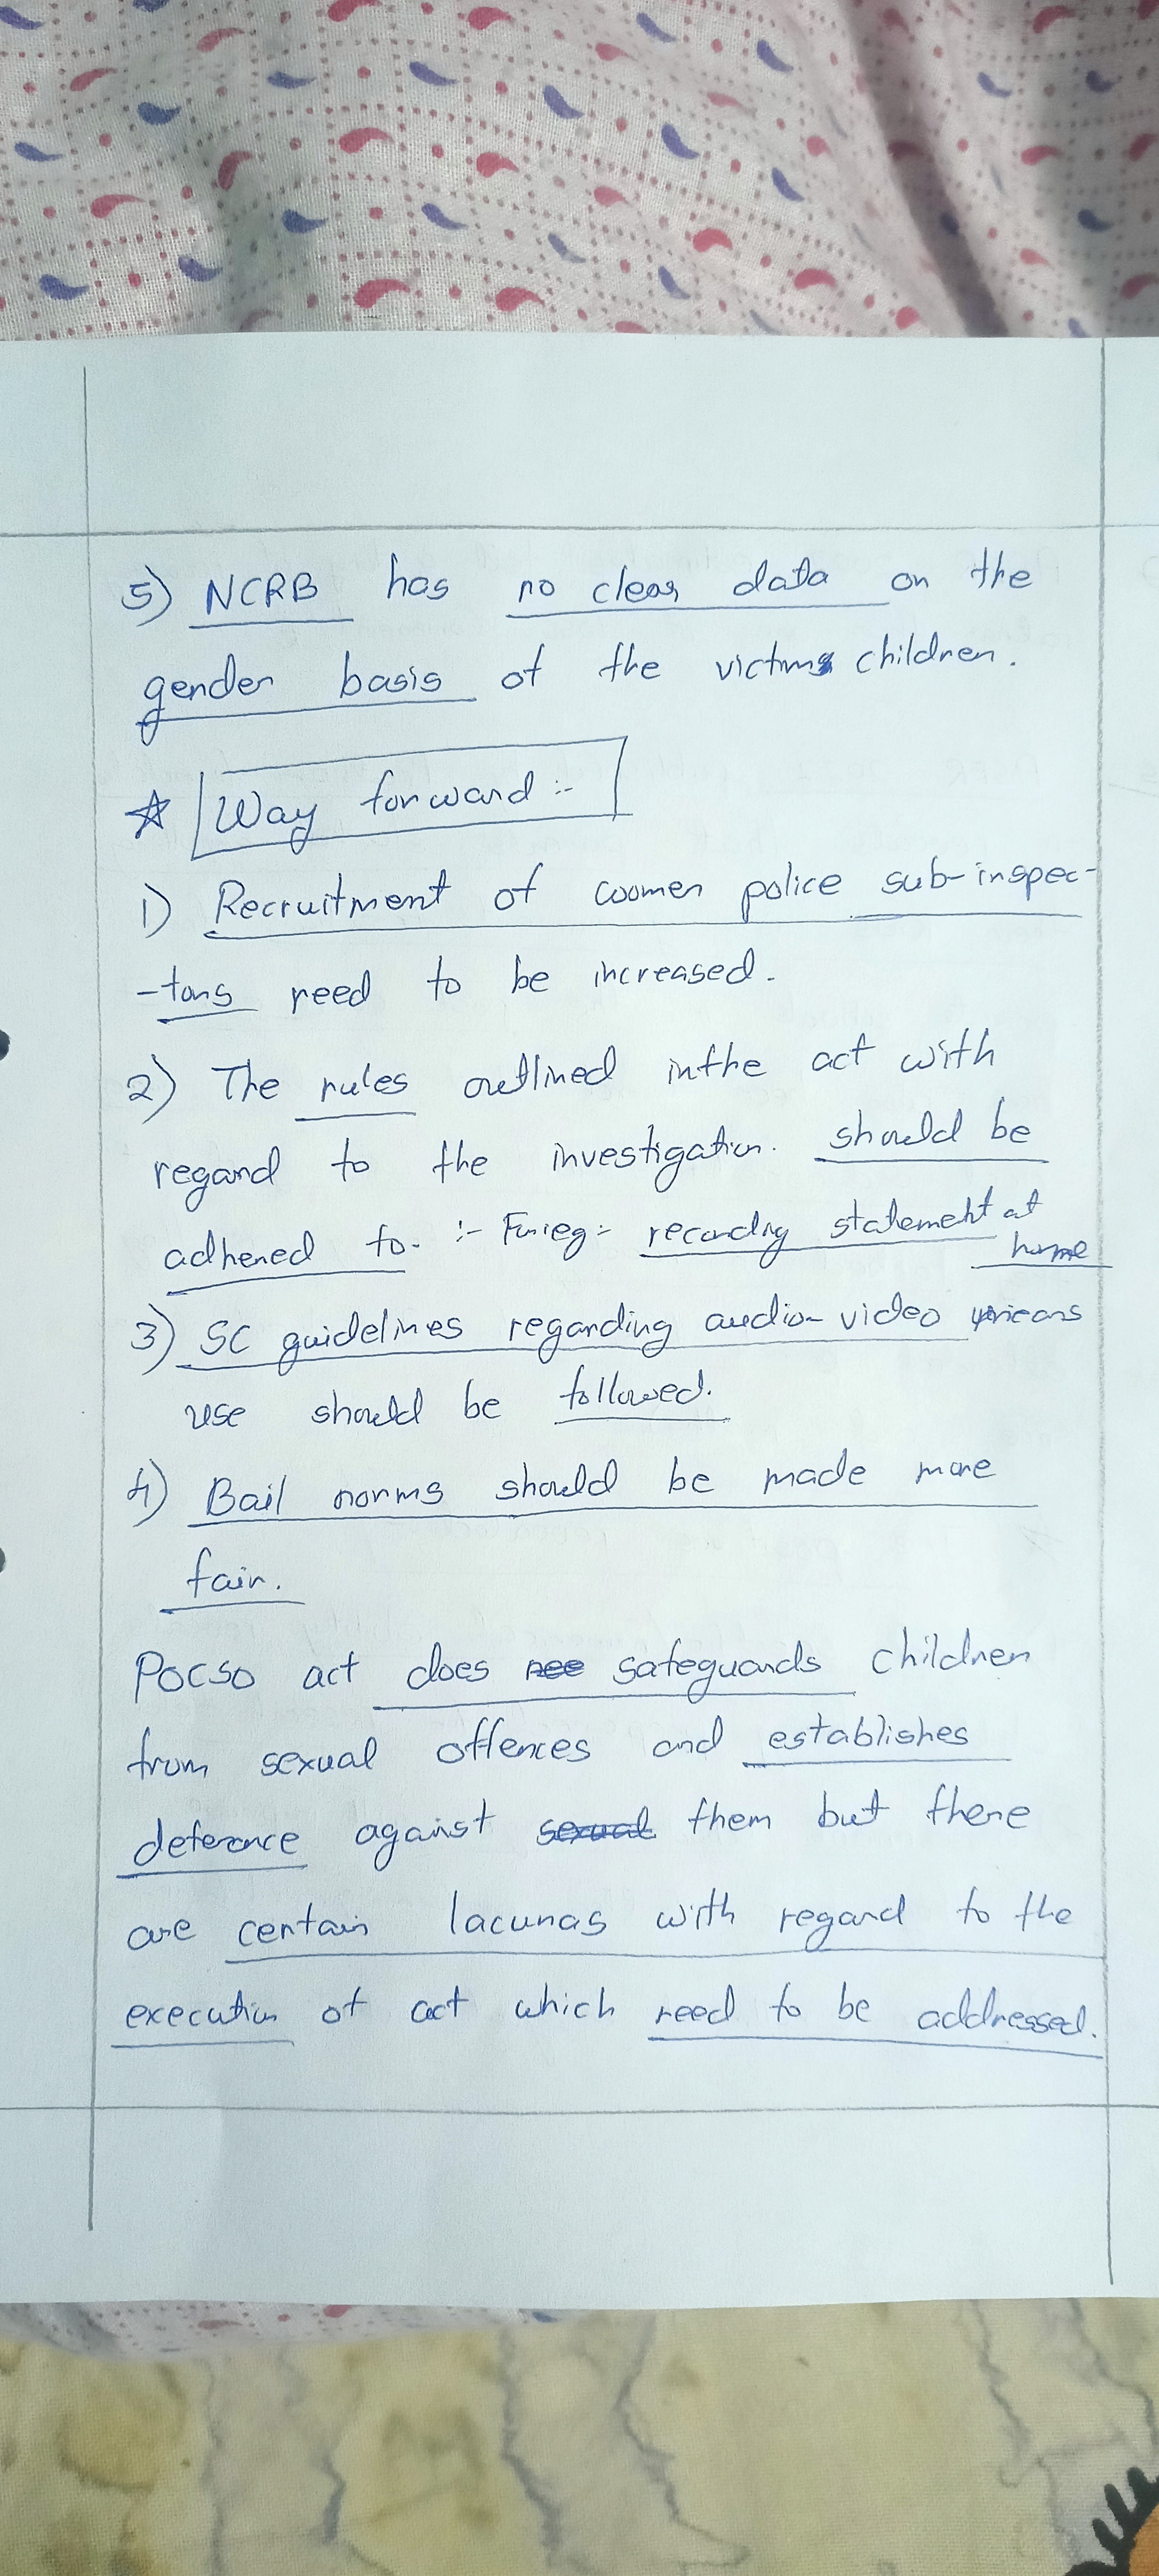 5) NCRB has no clear data on the
gender basis of the victims children.
☆ Way forward :-
1) Recruitment of women police sub-inspec-
-tors need to be increased.
2) The rules outlined in the act with
regard to the investigation. should be
adhered to. :- For eg:- recording statement at
home
3) SC guidelines regarding audio-video means
use should be followed.
4) Bail norms should be made more
fair.
POCSO act does safeguards children
from sexual offences and establishes
deterence against sexual them but there
are certain lacunas with regard to the
execution of act which need to be addressed.